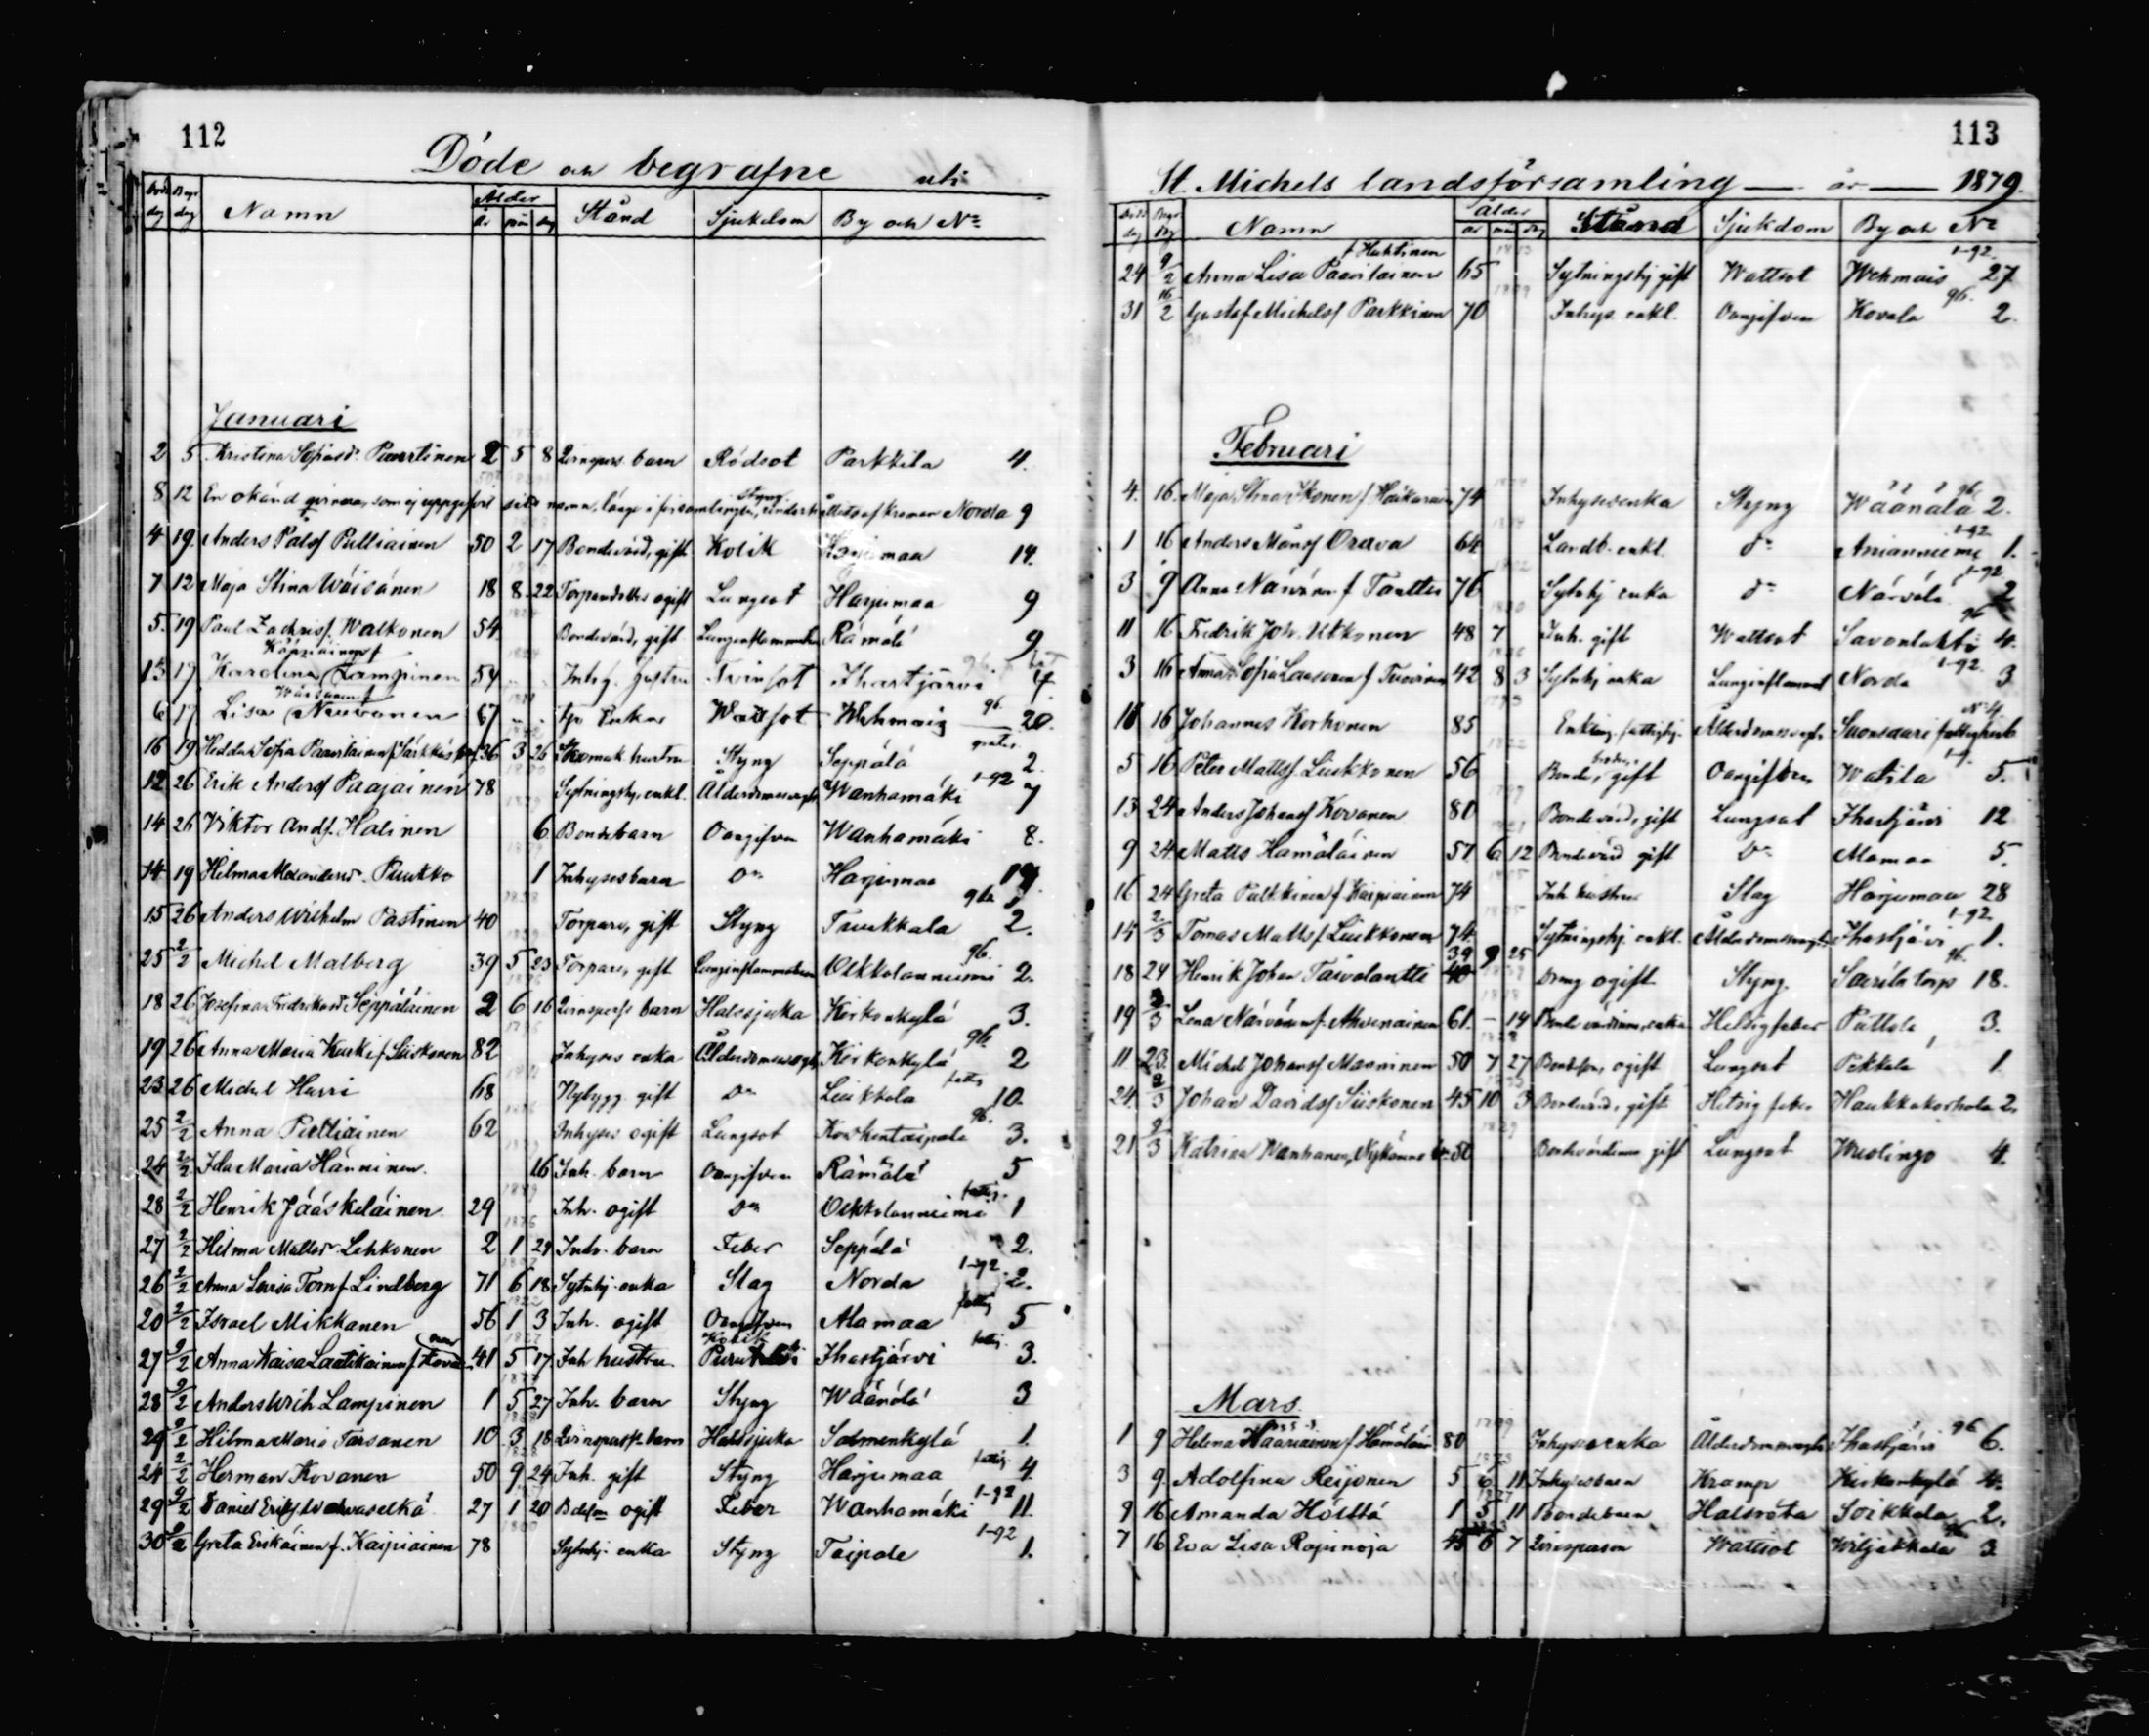 112
Döde och begrafne uti
Död dag Begr dag Namn Ålder år mån dag Stånd Sjukdom By och No
Januari
2 5 Kristina Sofiasdr. Puurtinen 2 5 8 Qvinspers. barn Rödsot Parkkila 4.
8 12 En okänd qvinna, som ej uppgifvit sitt namn, länge i församlingen, Styng Norola 9
4 19. Anders Pålsf Pulliainen 50 2 17 Bondevärd, gift Kolik Harjumaa 14.
7 12 Maja Stina Wäisänen 18 8 22 Torparedotter ogift Lungsot Harjumaa 9
5. 19 Paul Zachrisf. Walkonen 54 Bondevärd, gift Lunginflammation Rämälä 9
Käppiäinen f
13 17 Karolina Lampinen 54 Inhys. hustru Tvinsot Ihastjärvi 96. 4
Wäisänen f
6 17 Lisa Neuvonen 67 Enka Wattsot Wehmais 96. 20.
16 19 Hedda Sofia Paavilainen f Särkkä 36 3 26 Skomak. hustru Styng Seppälä 2.
12 26 Erik Andersf Paajainen 78 Sytningshj. enkl. Ålderdomssvaghet Wanhamäki 1-92 7
14 26 Viktor Andf. Halinen 6 Bondebarn Oangifven Wanhamäki 8.
14 19 Hilma Alexandersdr. Puukko 1 Inhysesbarn Do Harjumaa 19.
15 26 Anders Wilhelm Pastinen 40 Torpare, gift Styng Tuukkala 96. 2.
25 2/2 Michel Malberg 39 5 23 Torpare, gift Lunginflammation Olkkolanniemi 96. 2.
18 26 Josefina Fredriksd. Seppäläinen 2 6 16 Qvinspers barn Halssjuka Kirkonkylä 3.
19 26 Anna Maria Kurki f Siiskonen 82 Inhyses enka Ålderdomssvaght Kirkonkylä 96. 2
23 26 Michel Hurri 68 Nybygg. gift Do Liukkola fattig 10.
25 2/2 Anna Pulliainen 62 Inhyses ogift Lungsot Korkentaipale 96. 3.
24 2/2 Ida Maria Hänninen. 16 Inh. barn Oangifven Rämälä 5
28 2/2 Henrik Jääskeläinen. 29 Inh. ogift Do Olkkolanniemi fattig. 1
27 2/2 Hilma Mattsdr. Lehkonen 2 1 29 Inh. barn Feber Seppälä 2.
26 2/2 Anna Lovisa Torn f Lindberg 71 6 18 Sytnhj. enka Slag Norola 1-92. 2.
20 2/2 Israel Mikkanen 56 1 3 Inh. ogift Oangifven Alamaa fattig 5
27 9/2 Anna Kaisa Laatikainen f Kovanen 41 5 17 Inh hustru Kolik Ihastjärvi fattig. 3.
28 9/2 Anders Wilh Lampinen 1 5 27 Inh. barn Styng Wäänälä 3
29 9/2 Hilma Maria Tarsanen 10 3 18 Qvinspers. barn Halssjuka Salmenkylä 1.
24 2/2 Herman Kovanen 50 9 24 Inh. gift Styng Harjumaa fattig. 4
29 9/2 Daniel Eriksf Wahvaselkä 27 1 20 Bdeson ogift Feber Wanhamäki 1-92 11.
30 9/2 Greta Erikäinen f. Kaipiainen 78 Sytnhj. enka Styng Taipale 1-92 1.
113
St. Michels landsförsamling år 1879.
Död dag Begr dag Namn Ålder år mån dag Stånd Sjukdom By och No
f Huhtinen
24 9/2 Anna Lisa Paavilainen 65 Sytningshj gift Wattsot Wehmais 1-92. 27
31 16/2 Gustaf Michelsf Parkkinen 70 Inhys. enkl. Oangifven Kovala 96. 2.
Februari
4. 16. Maja Stina Ikonen f Häkärainen 74 Inhysesenka Styng Wäänälä 96. 2.
1 16 Anders Månsf Orava 64 Landb. enkl. do Anianniemi 1-92 1.
3 9 Anna Närvänen f Tanttu 76 Sytnhj enka do Närvälä 1-92 2
11 16 Fredrik Joh. Ukkonen 48 7 Inh. gift Wattsot Savonlahti 96 4.
3 16 Anna Sofia Laasonen f Tuovinen 42 8 3 Sytnhj enka Lunginflammat Norola 1-92. 3
10 16 Johannes Korhonen 85 Enkling, fattighj. Ålderdomssvaght. Suonsaari fattighielp
5 16 Peter Mattsf. Liukkonen 56 Bonde, gift Oangifven Watila 5.
13 24 Anders Johansf Kovanen 80 Bondevärd, gift Lungsot Ihastjärvi 12
9 24 Matts Hämäläinen 57 6 12 Bondevärd gift Do Alamaa 5.
16 24 Greta Pulkkinen f Kaipiainen 74 Inh hustru Slag Harjumaa 28
14 2/3 Tomas Mattsf. Liukkonen 74. Sytningshj. enkl. Ålderdomssvaght Ihastjärvi 1-92 1.
18 24 Henrik Johan Taivalantti 39 9 25 Dräng ogift Styng. Saksala torp 96. 18.
19 2/3 Lena Närvänen f. Ahvenainen 61. – 14 Bonde värdinna, enka Hetsig feber Pullola 3.
11 23 Michel Johansf Manninen 50 7 27 Bondson, ogift Lungsot Pekkala 1
24. 2/3 Johan Davidsf Siiskonen 45 10 3 Bondevärd, gift Hetsig feber Haukkakorhola 2.
21 2/3 Katrina Wanhanen, Nykänen 50 Bondevärdinna gift Lungsot Wuolingo 4.
Mars.
1 9 Helena f Hämäläin 80 Inhysesenka Ålderdomssvaght Ihastjärvi 96 6.
3 9. Adolfina Reijonen 5 6 11 Inhysesbarn Kramp Kirkonkylä 4.
9 16 Amanda Hölttä 1 5 11 Bondebarn Halsröta Soikkala 2.
7 16 Eva Lisa Rapinoja 45 6 7 Qvinsperson Wattsot Wiljakkala 96. 3